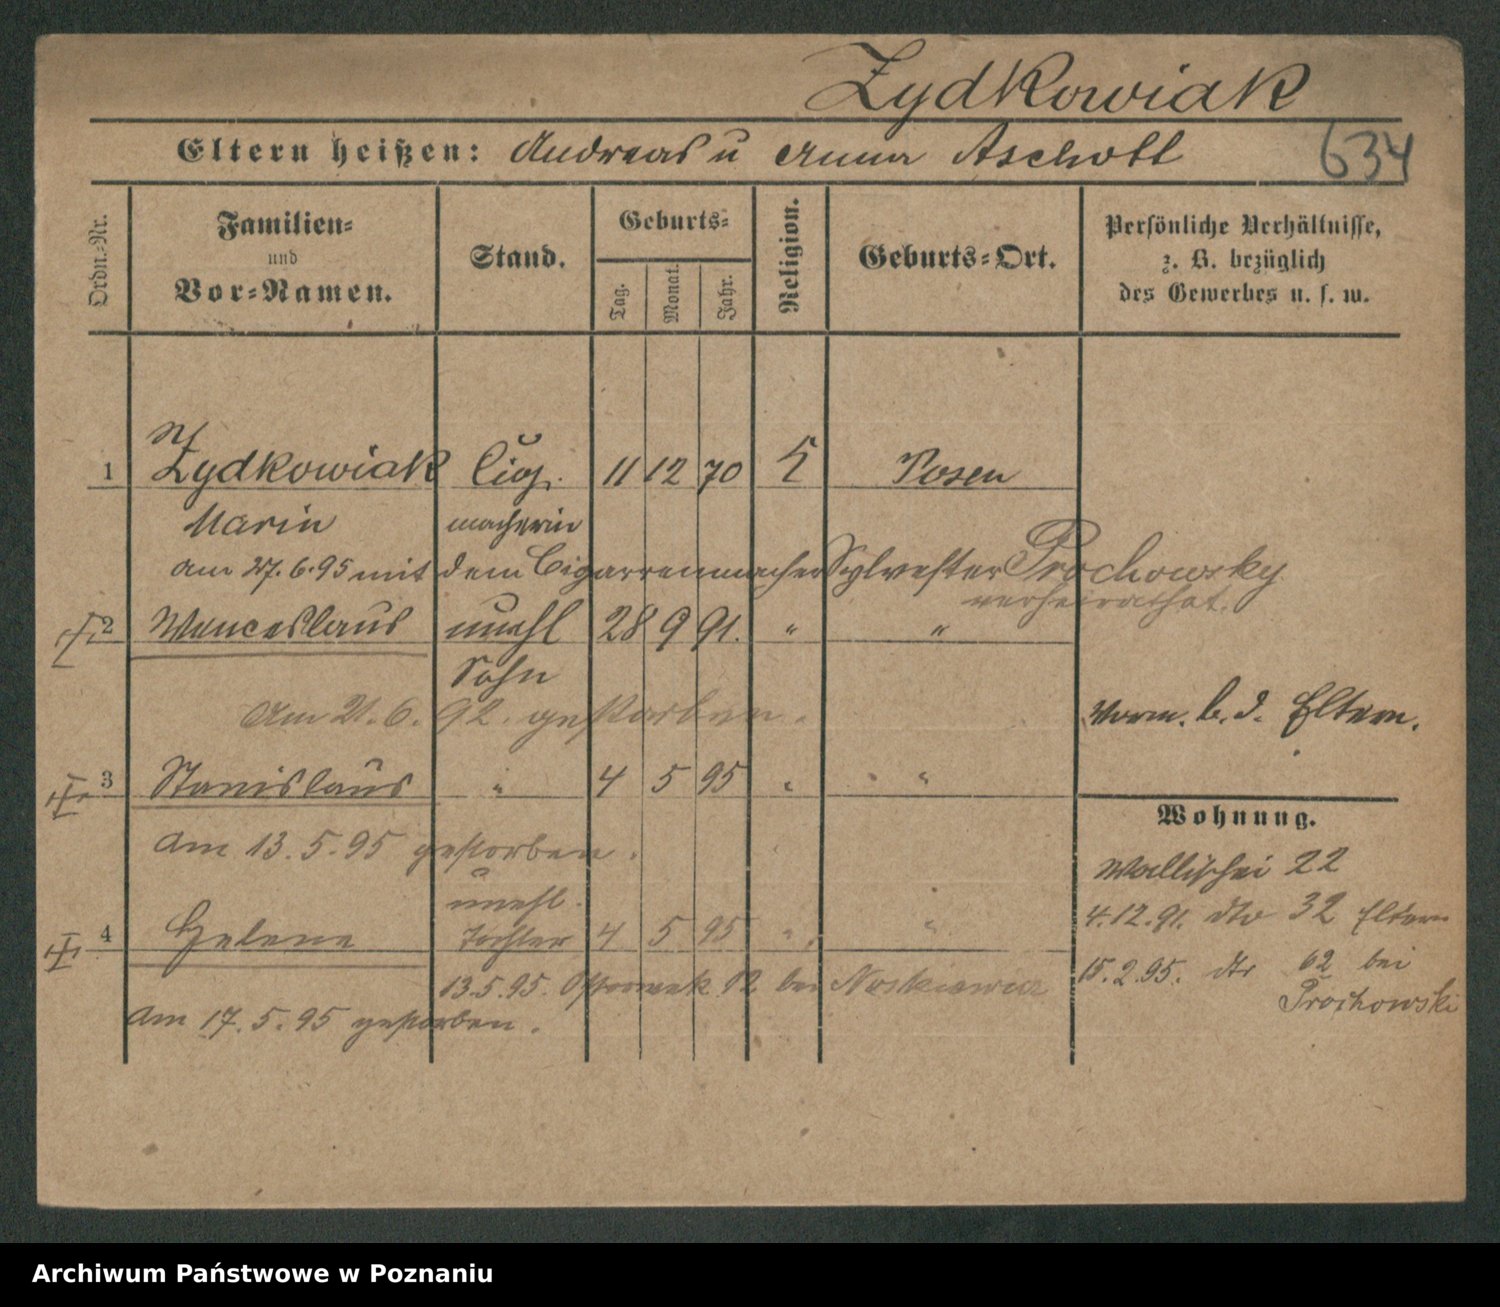 Zydkowiak
Eltern heißen: Andreas u Anna Aschott
634
Ordn.-Nr.
Familien-
und
Vor-Namen.
Stand.
Geburts-
Tag.
Monat.
Jahr.
Religion.
Geburts-Ort.
Persönliche Verhältnisse,
z. B. bezüglich
des Gewerbes u. s. w.
1 Zydkowiak Cig. 11 12 70 k Posen
Marie macherin
am 27.6.95 mit dem Cigarrenmacher Sylvester Prochowsky
verheirathet.
2 Wenceslaus unehl 28 9 91. " "
Sohn
Am 21.6.92. gestorben.
Vorm. b. d. Eltern.
3 Stanislaus " 4 5 95 " "
Wohnung.
am 13.5.95 gestorben.
Wallischei 22
unehl.
4.12.91. dto 32 Eltern
4 Helene Tochter 4 5 95 " "
15.2.95. dto 62 bei
Prochowski
13.5.95. Ostrowek 12 bei
am 17.5.95 gestorben.
Archiwum Państwowe w Poznaniu